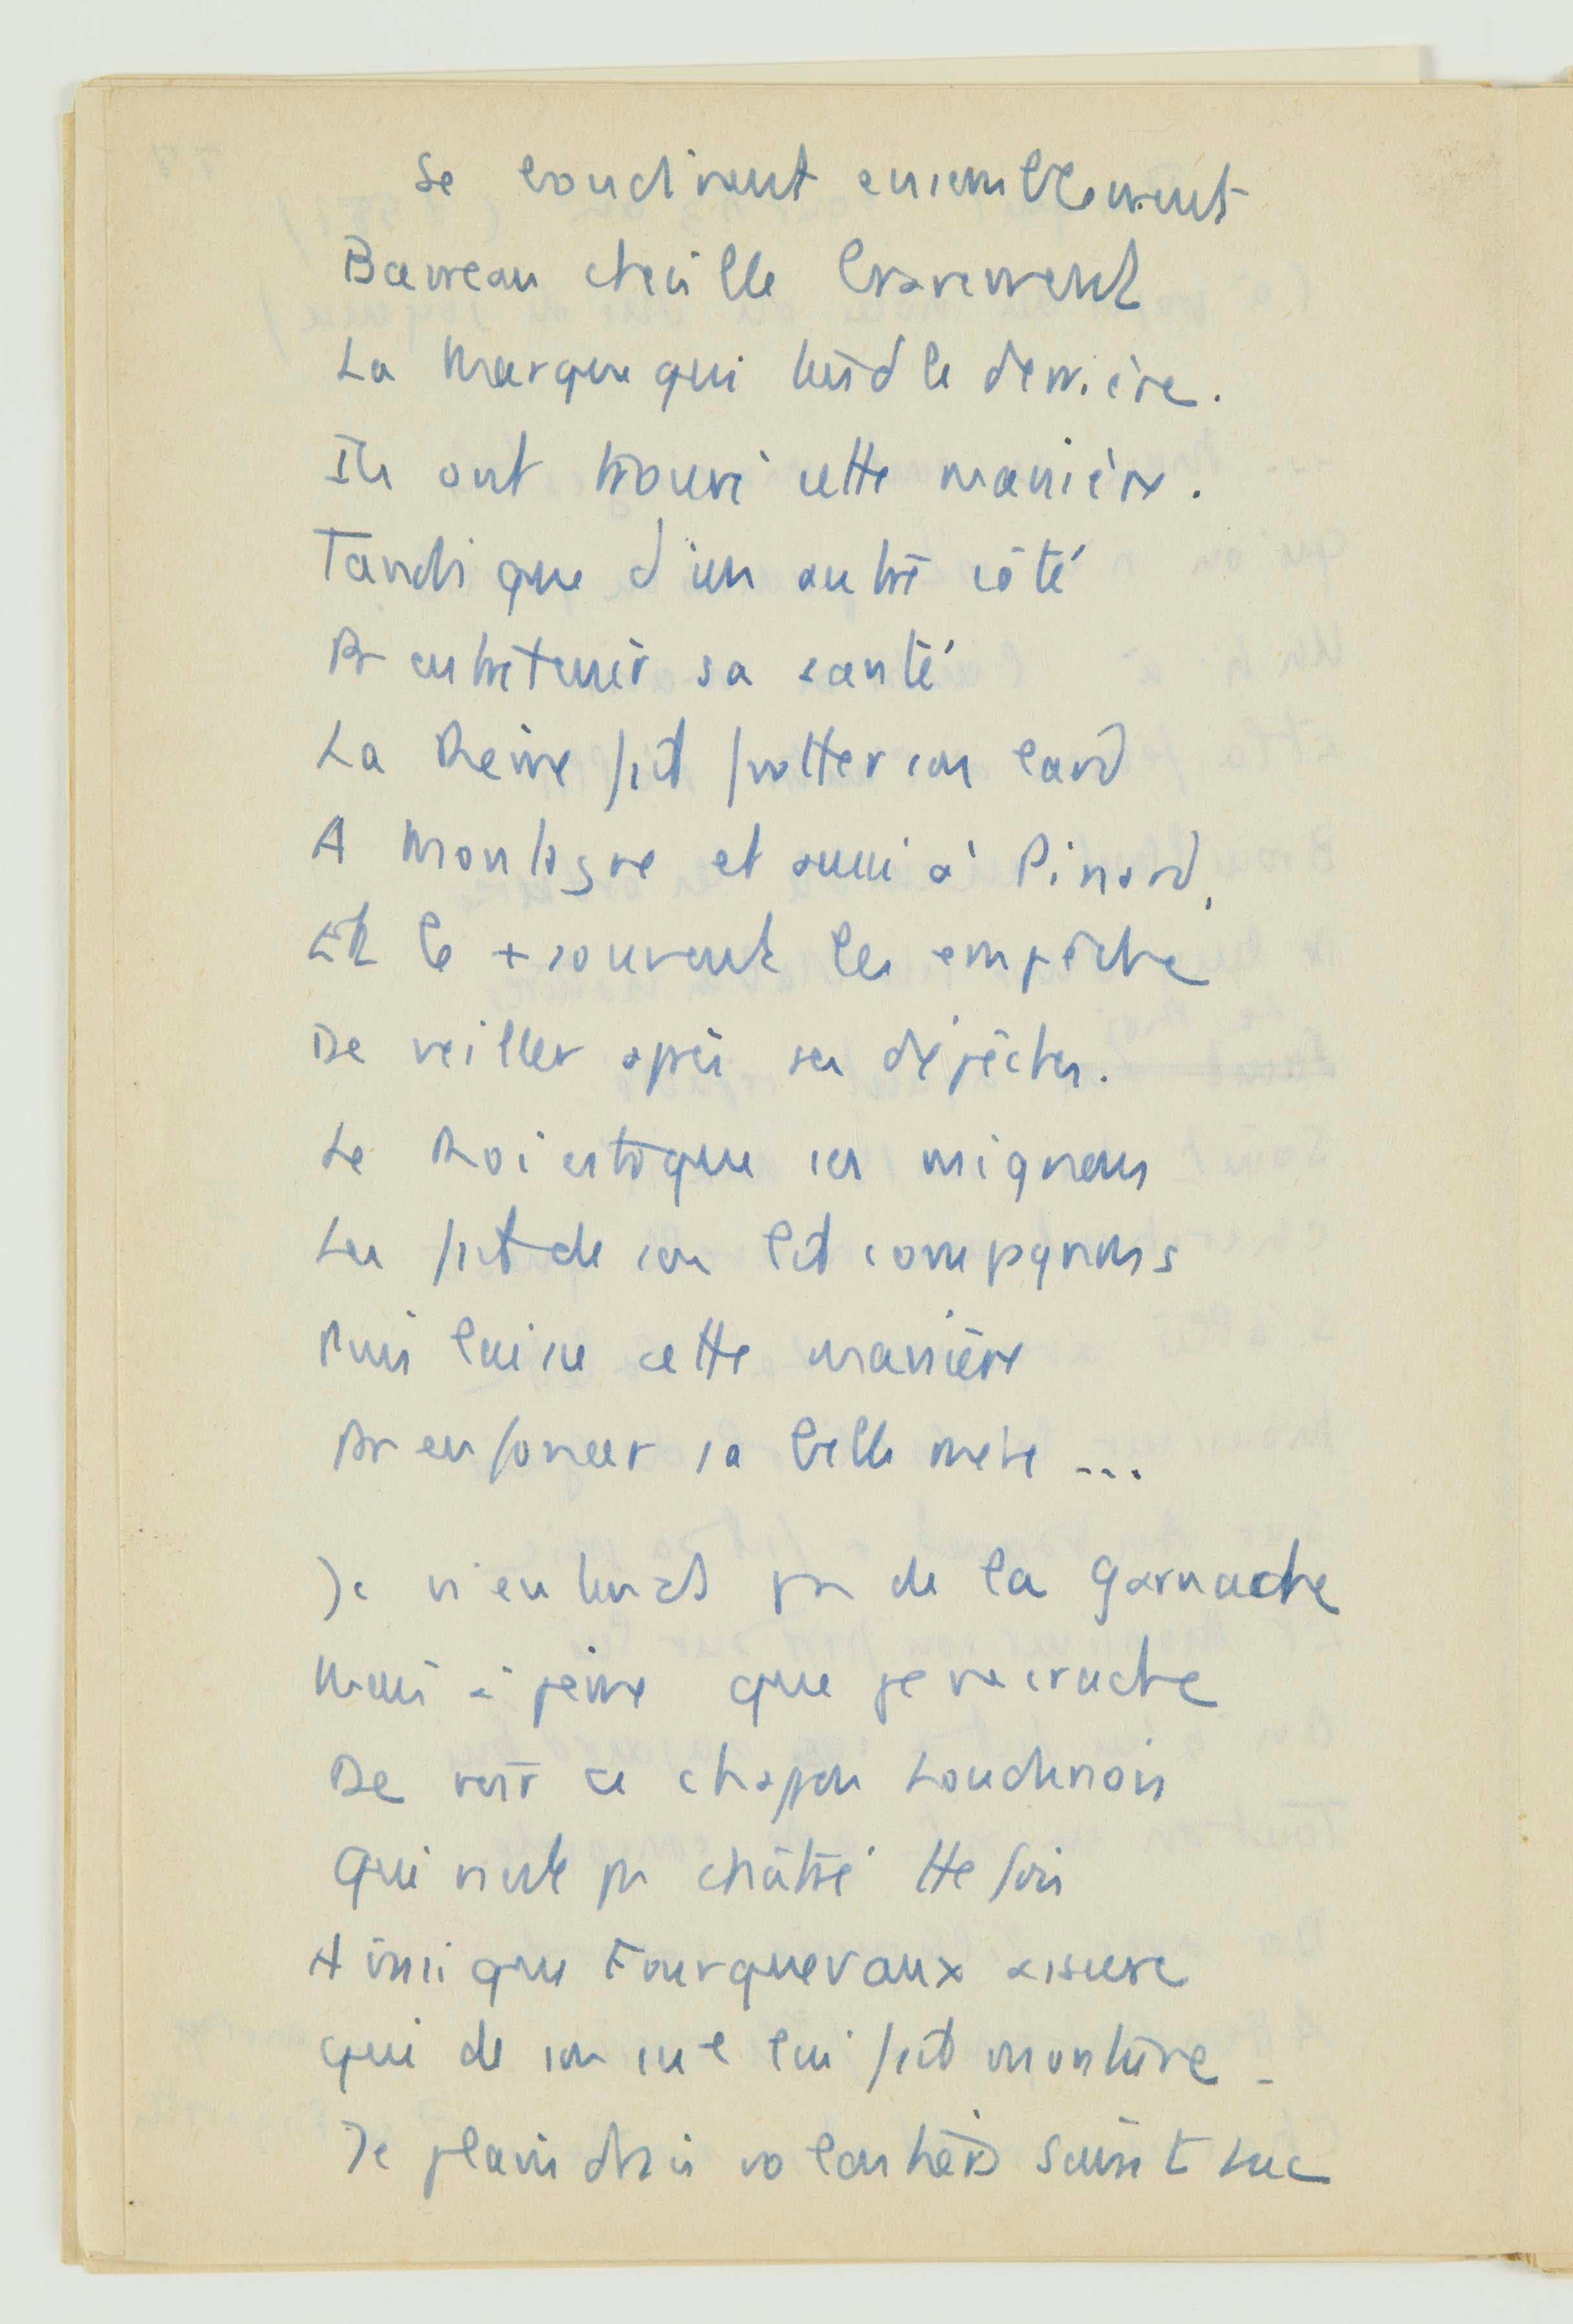 Se couchirent ensemblement
Bauveau cheville bravement
La Marque qui tend le derrière.
Ils ont trouvé cette manière.
Tandis que d'un autre côté
Pr entretenir sa santé
La Reine fait frotter son lard
A Montagne et aussi à Pinard,
Et le + souvent les empêche
De veiller après ses dépêches.
Le Roi estoque ses mignons
Les fait de son lit compagnons
Puis laisse cette manière
Pr enfoncer sa belle mère ...
Je n'entends pas de la Garnache
Mais à peine que je ne crache
De voir ce chapon Loudunois
Qui n'est pas châtré tte fois
Ainsi que Fourquevaux assure
qui de son cul lui fait monture -
Je plaindrais volontiers Saint Luc